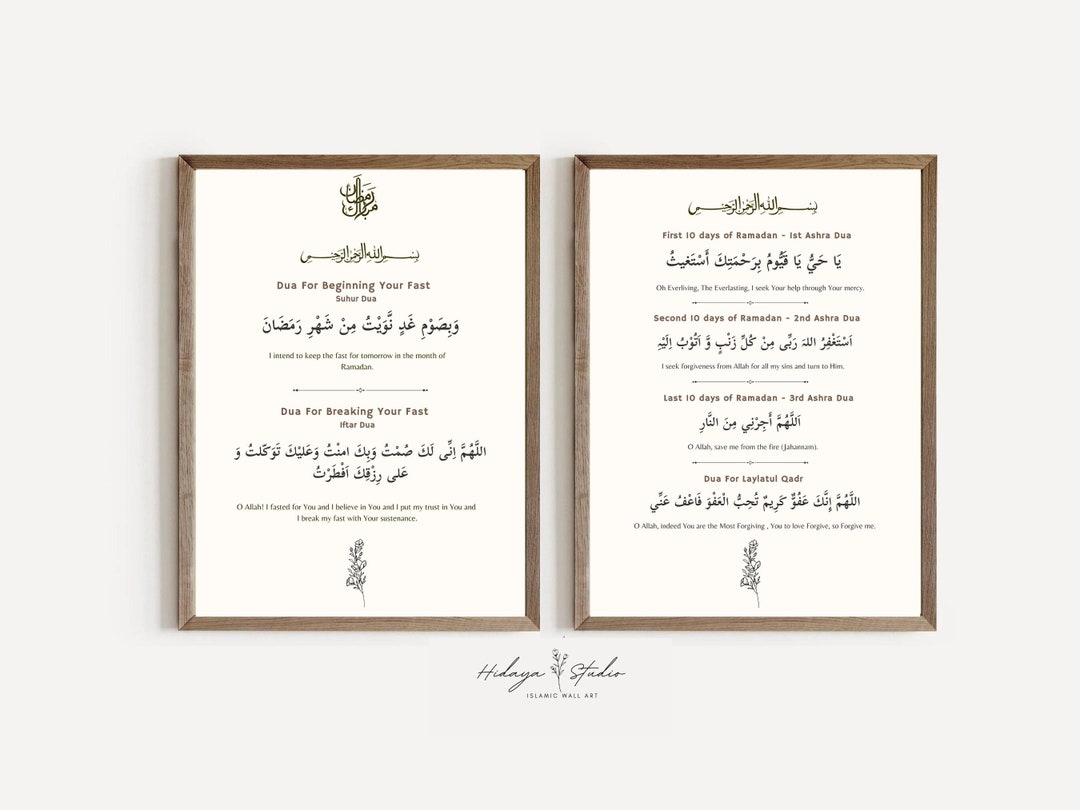 رمضان مبارك
بسم الله الرحمن الرحيم
Dua For Beginning Your Fast
Suhur Dua
وَبِصَوْمِ غَدٍ نَّوَيْتُ مِنْ شَهْرِ رَمَضَانَ
I intend to keep the fast for tomorrow in the month of
Ramadan.
Dua For Breaking Your Fast
Iftar Dua
اللَّهُمَّ اِنِّى لَكَ صُمْتُ وَبِكَ امنْتُ وَعَليْكَ تَوَكّلتُ وَ
عَلى رِزْقِكَ اَفْطَرْتُ
O Allah! I fasted for You and I believe in You and I put my trust in You and
I break my fast with Your sustenance.
بسم الله الرحمن الرحيم
First 10 days of Ramadan - 1st Ashra Dua
يَا حَيُّ يَا قَيُّومُ بِرَحْمَتِكَ أَسْتَغيثُ
Oh Everliving, The Everlasting, I seek Your help through Your mercy.
Second 10 days of Ramadan - 2nd Ashra Dua
اَسْتَغْفِرُ اللهَ رَبِّى مِنْ كُلِّ زَنْبٍ وَّ اَتُوْبُ اِلَيْهِ
I seek forgiveness from Allah for all my sins and turn to Him.
Last 10 days of Ramadan - 3rd Ashra Dua
اَللَّهُمَّ أَجِرْنِي مِنَ النَّارِ
O Allah, save me from the fire (Jahannam).
Dua For Laylatul Qadr
اللَّهُمَّ إِنَّكَ عَفُوٌّ كَرِيمٌ تُحِبُّ الْعَفْوَ فَاعْفُ عَنِّي
O Allah, indeed You are the Most Forgiving , You to love Forgive, so Forgive me.
Hidaya Studio
ISLAMIC WALL ART